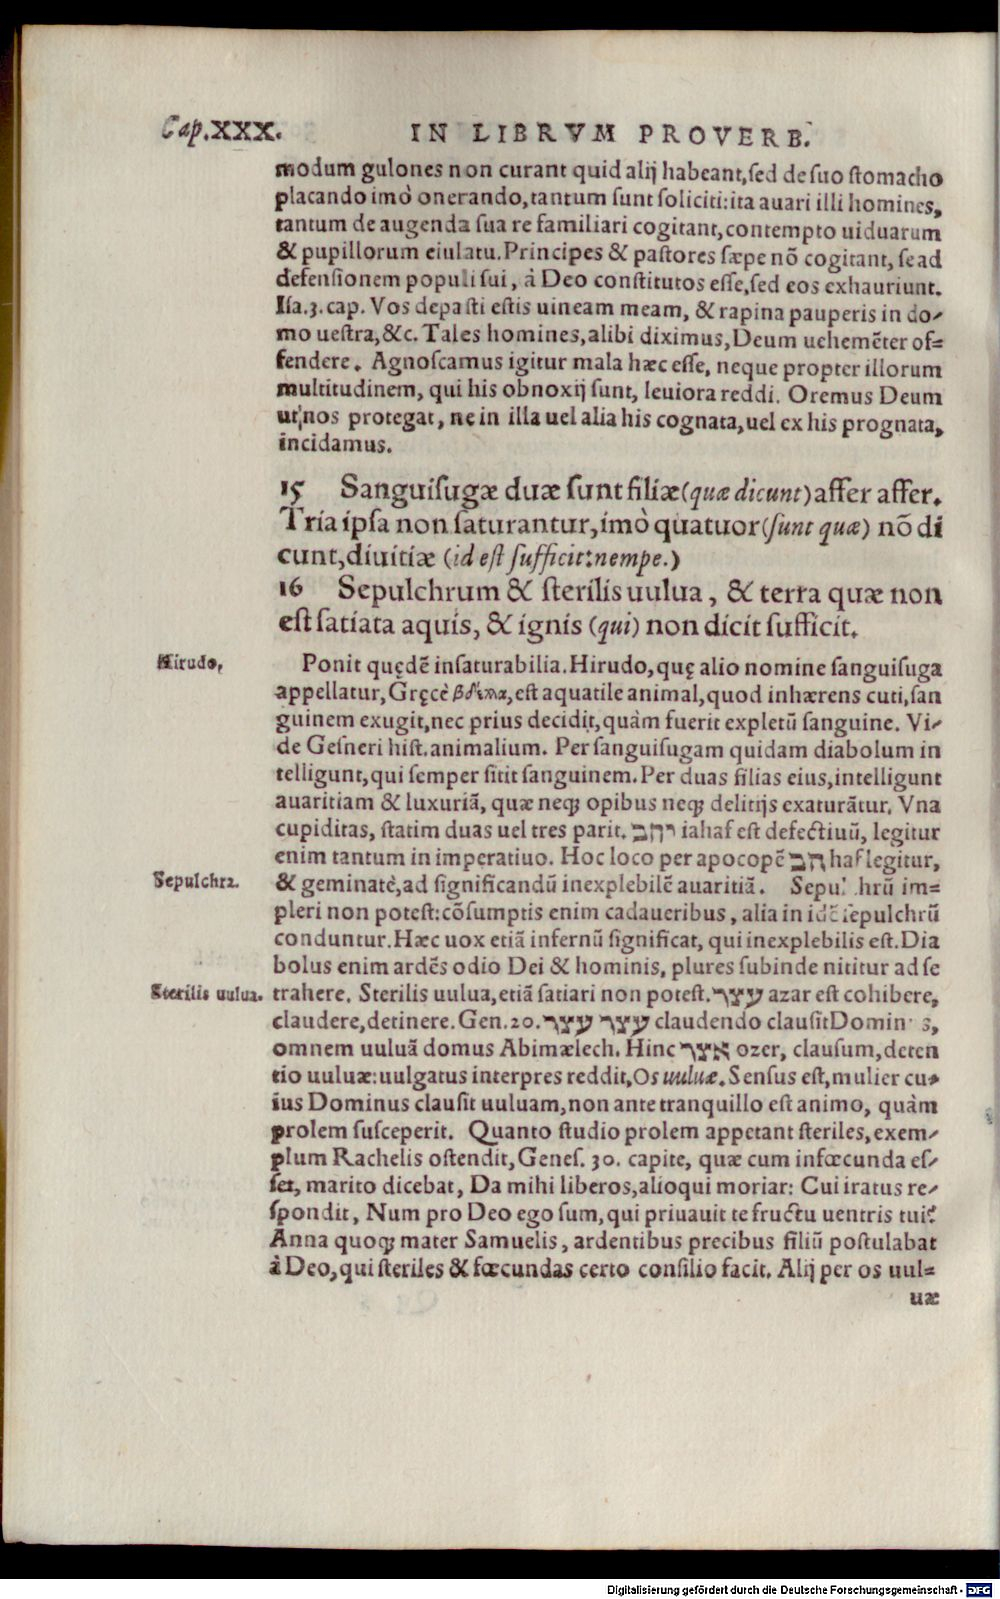 Cap.XXX. IN LIBRVM PROVERB.
modum gulones non curant quid alij habeant, sed de suo stomacho
placando imò onerando, tantum sunt soliciti: ita auari illi homines,
tantum de augenda sua re familiari cogitant, contempto uiduarum
& pupillorum eiulatu. Principes & pastores sæpe nõ cogitant, se ad
defensionem populi sui, à Deo constitutos esse, sed eos exhauriunt.
Isa.3.cap. Vos depasti estis uineam meam, & rapina pauperis in do-
mo uestra, &c. Tales homines, alibi diximus, Deum uehemẽter of=
fendere. Agnoscamus igitur mala hæc esse, neque propter illorum
multitudinem, qui his obnoxij sunt, leuiora reddi. Oremus Deum
ut nos protegat, ne in illa uel alia his cognata, uel ex his prognata,
incidamus.
15 Sanguisugæ duæ sunt filiæ (quæ dicunt) affer affer.
Tria ipsa non saturantur, imò quatuor (sunt quæ) nõ di
cunt, diuitiæ (id est sufficit: nempe.)
16 Sepulchrum & sterilis uulua, & terra quæ non
est satiata aquis, & ignis (qui) non dicit sufficit.
Hirudo,
Ponit quędẽ insaturabilia. Hirudo, quę alio nomine sanguisuga
appellatur, Gręcè βδέλλα, est aquatile animal, quod inhærens cuti, san
guinem exugit, nec prius decidit, quàm fuerit expletũ sanguine. Vi-
de Gesneri hist. animalium. Per sanguisugam quidam diabolum in
telligunt, qui semper sitit sanguinem. Per duas filias eius, intelligunt
auaritiam & luxuriã, quæ neq; opibus neq; delitijs exaturãtur. Vna
cupiditas, statim duas uel tres parit. יהב iahaf est defectiuũ, legitur
enim tantum in imperatiuo. Hoc loco per apocopẽ הב haf legitur,
Sepulchra.
& geminatè, ad significandũ inexplebilẽ auaritiã. Sepulchrũ im=
pleri non potest: cõsumptis enim cadaueribus, alia in idẽ sepulchrũ
conduntur. Hæc uox etiã infernũ significat, qui inexplebilis est. Dia
bolus enim ardẽs odio Dei & hominis, plures subinde nititur ad se
Sterilis uulua.
trahere. Sterilis uulua, etiã satiari non potest. עצר azar est cohibere,
claudere, detinere. Gen. 20. עצר עצר claudendo clausit Dominus,
omnem uuluã domus Abimælech. Hinc אצר ozer, clausum, deten
tio uuluæ: uulgatus interpres reddit, Os uuluæ. Sensus est, mulier cu-
ius Dominus clausit uuluam, non ante tranquillo est animo, quàm
prolem susceperit. Quanto studio prolem appetant steriles, exem-
plum Rachelis ostendit, Genes. 30. capite, quæ cum infœcunda es-
set, marito dicebat, Da mihi liberos, alioqui moriar: Cui iratus re-
spondit, Num pro Deo ego sum, qui priuauit te fructu uentris tui?
Anna quoq; mater Samuelis, ardentibus precibus filiũ postulabat
à Deo, qui steriles & fœcundas certo consilio facit. Alij per os uul=
uæ
Digitalisierung gefördert durch die Deutsche Forschungsgemeinschaft - DFG